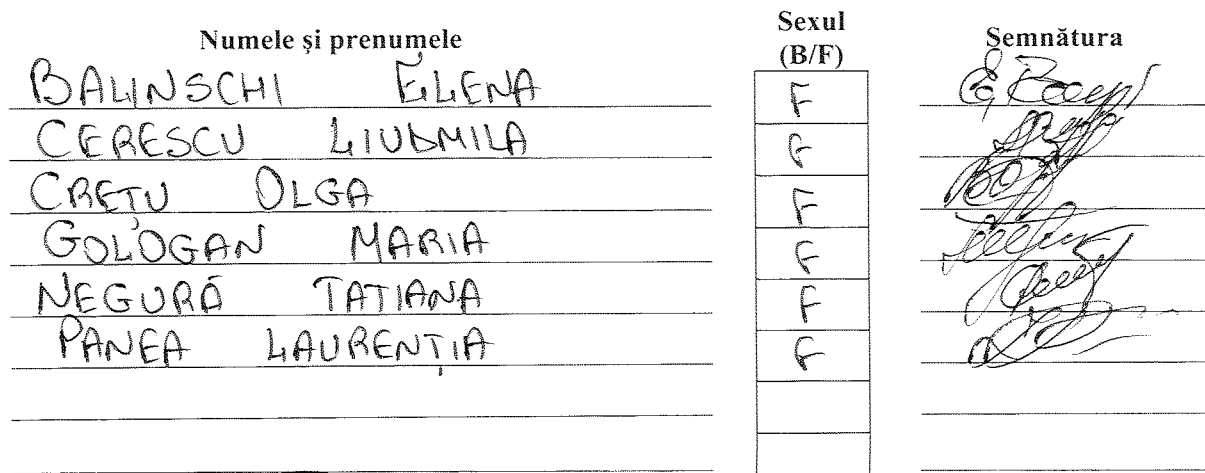 Numele și prenumele Sexul (B/F) Semnătura
BALINSCHI ELENA F
CERESCU LIUDMILA F
CREȚU OLGA F
GOLOGAN MARIA F
NEGURĂ TATIANA F
PANEA LAURENȚIA F